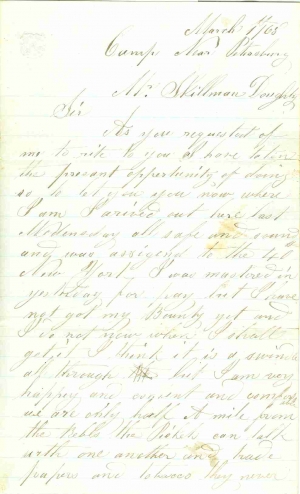 March 1st/65
Camp Near Petersburg
Mr. Skillman Dougherty
Sir
As you requested of
me to rite to you I have taken
the present oppertunity of doing
so to let you you now where
I am I arived out here last
Wednesday all safe and sound
and was assigend to the 40
New York I was mustered in
yesterday for pay but I have
not got my Bounty yet and
I do not now when I shall
get it I think it is a swindle
all through but I am very
happy and content and
we are only half A mile from
the Rebls the Pickets can talk
with one another and trade
papers and tobacco they never